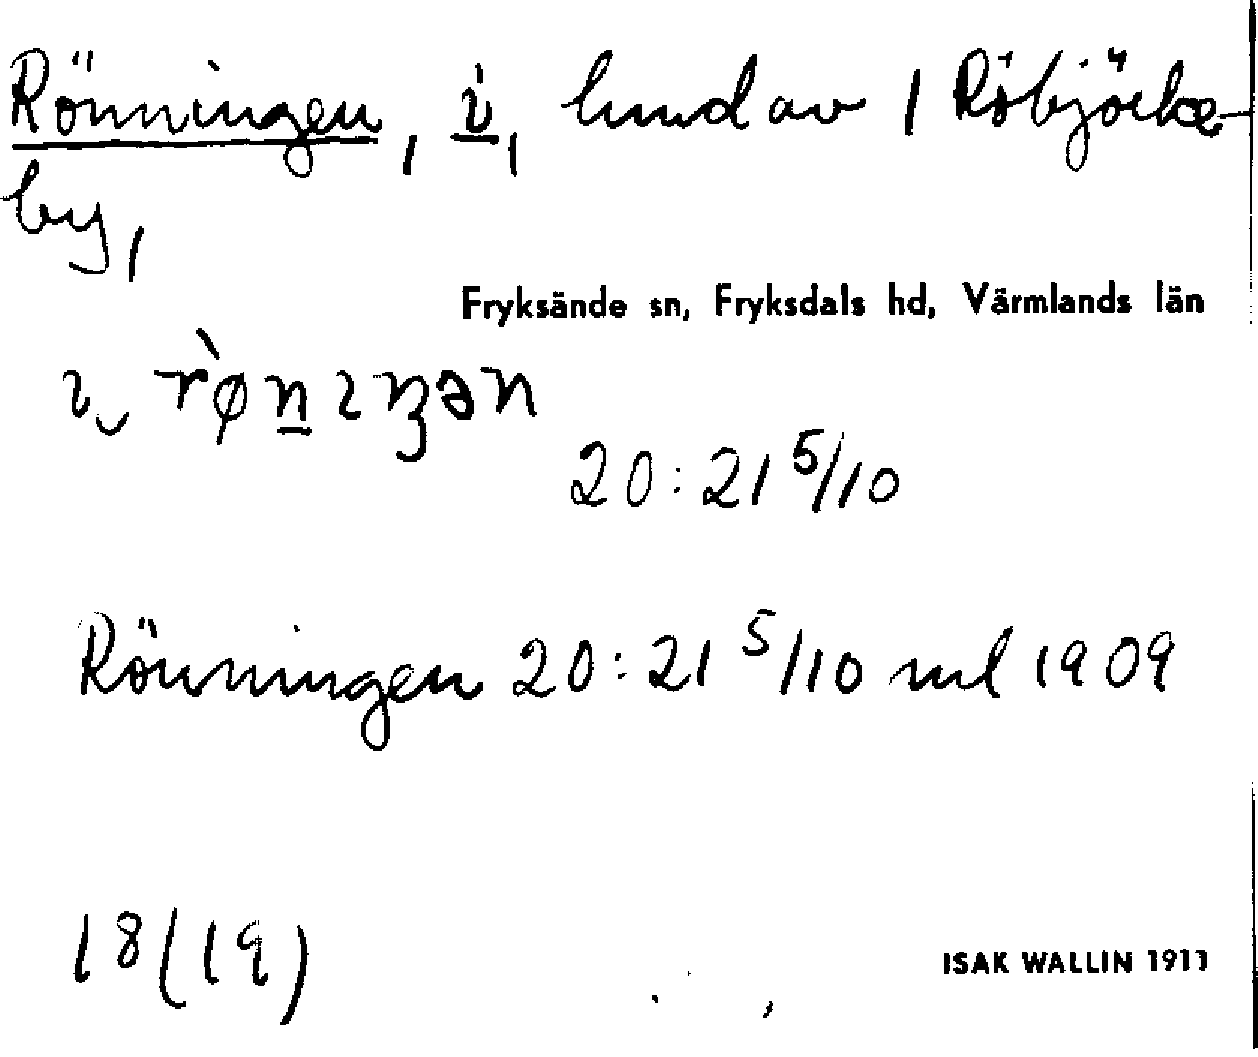 Rönningen, i, hmd av 1 Röbjörke-
by,
Fryksände sn, Fryksdals hd, Värmlands län
20:21 5/10
Rönningen 20:21 5/10 ml 1909
18(19)
ISAK WALLIN 1911